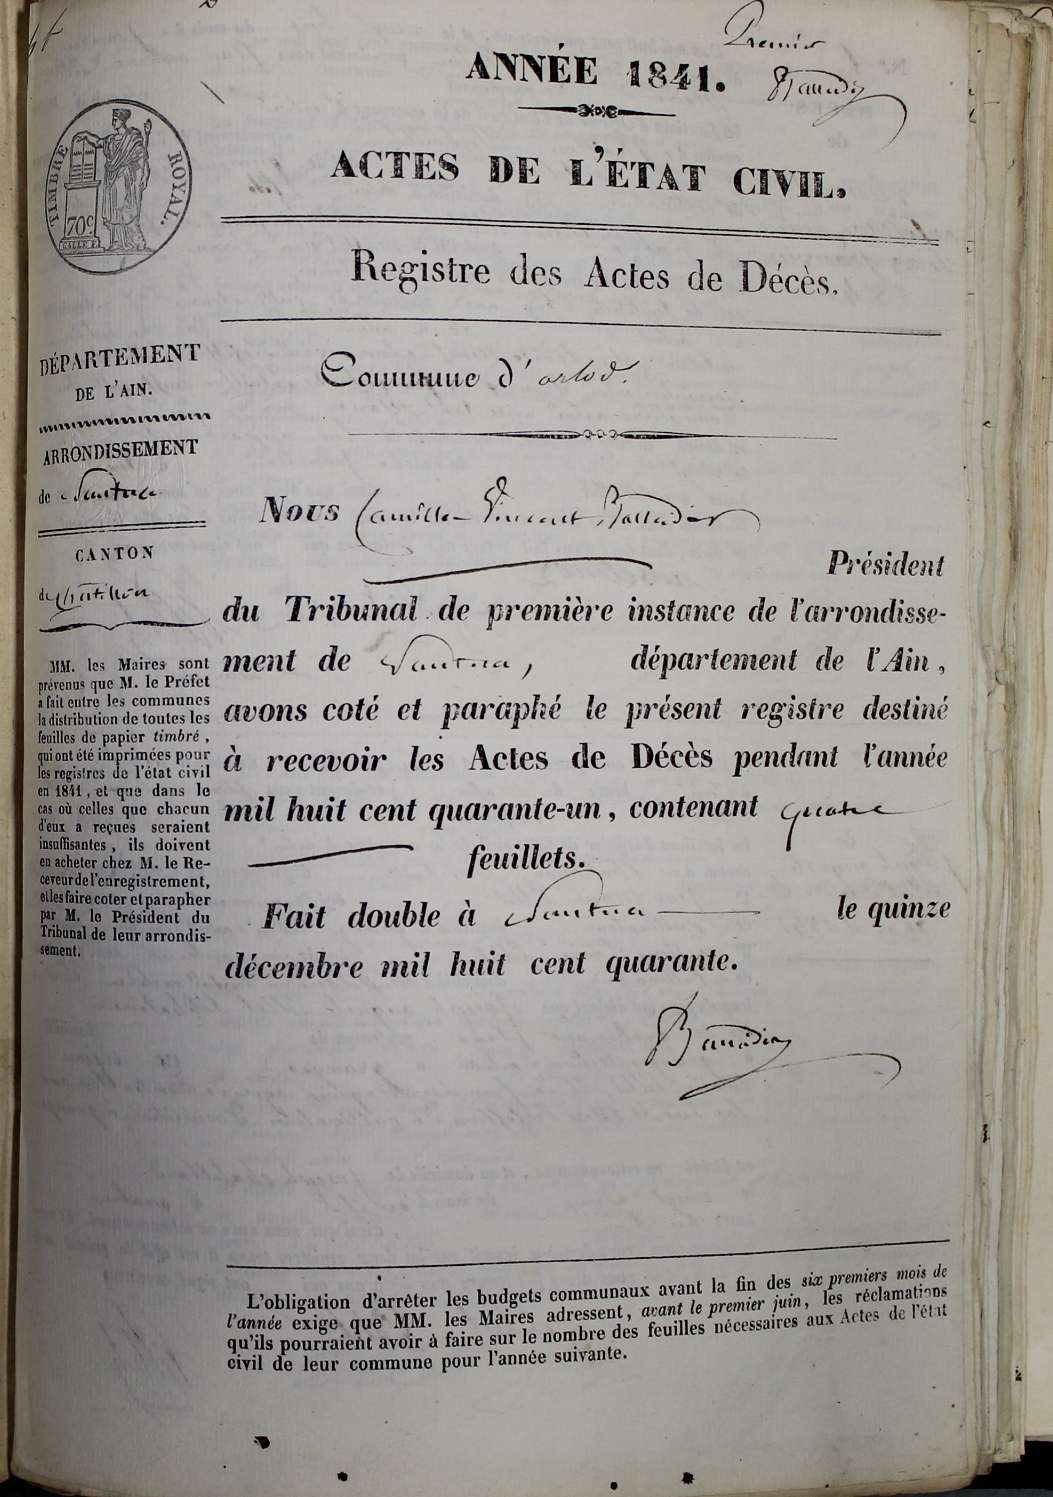 Premier
ANNÉE 1841.
ACTES DE L'ÉTAT CIVIL.
TIMBRE ROYAL.
70c
Registre des Actes de Décès.
Commune d'arlod.
DÉPARTEMENT
DE L'AIN.
ARRONDISSEMENT
de Nantua
CANTON
de Chatillon
MM. les Maires sont
prévenus que M. le Préfet
a fait entre les communes
la distribution de toutes les
feuilles de papier timbré,
qui ont été imprimées pour
les registres de l'état civil
en 1841, et que dans le
cas où celles que chacun
d'eux a reçues seraient
insuffisantes, ils doivent
en acheter chez M. le Re-
ceveur de l'enregistrement,
et les faire coter et parapher
par M. le Président du
Tribunal de leur arrondis-
sement.
Nous Camille Vincent
Président
du Tribunal de première instance de l'arrondisse-
ment de Nantua, département de l'Ain,
avons coté et paraphé le présent registre destiné
à recevoir les Actes de Décès pendant l'année
mil huit cent quarante-un, contenant quatre
feuillets.
Fait double à Nantua le quinze
décembre mil huit cent quarante.
L'obligation d'arrêter les budgets communaux avant la fin des six premiers mois de
l'année exige que MM. les Maires adressent, avant le premier juin, les réclamations
qu'ils pourraient avoir à faire sur le nombre des feuilles nécessaires aux Actes de l'état
civil de leur commune pour l'année suivante.